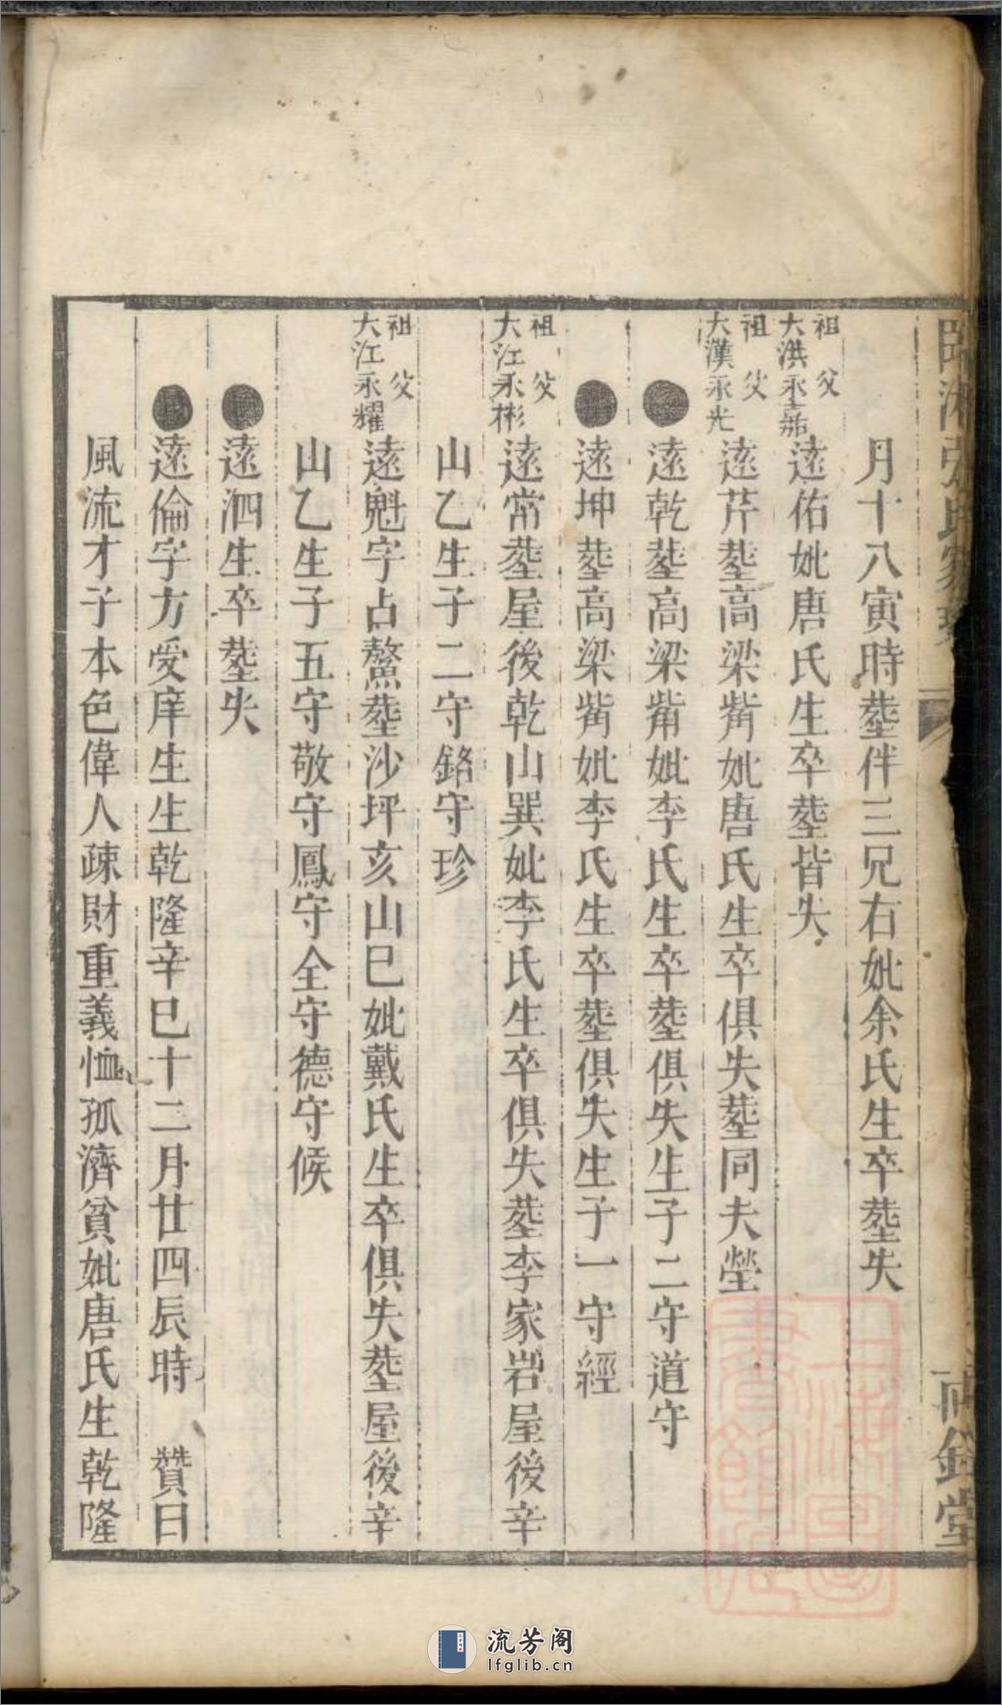 月十八寅時塟伴三兄右妣余氏生卒塟失
祖父
大洪永嘉
遠佑妣唐氏生卒塟皆失
祖父
大漢永光
遠芹塟高梁觜妣唐氏生卒俱失塟同夫塋
遠乾塟高梁觜妣李氏生卒塟俱失生子二守道守
遠坤塟高梁觜妣李氏生卒塟俱失生子一守經
祖父
大江永彬
遠常塟屋後乾山巽妣李氏生卒俱失塟李家岩屋後辛
山乙生子二守銘守珍
祖父
大江永耀
遠魁字占鰲塟沙坪亥山巳妣戴氏生卒俱失塟屋後辛
山乙生子五守敬守鳳守全守德守候
遠泗生卒塟失
遠倫字方受庠生生乾隆辛巳十二月廿四辰時 贊曰
風流才子本色偉人疎財重義恤孤濟貧妣唐氏生乾隆
流芳阁
lfglib.cn